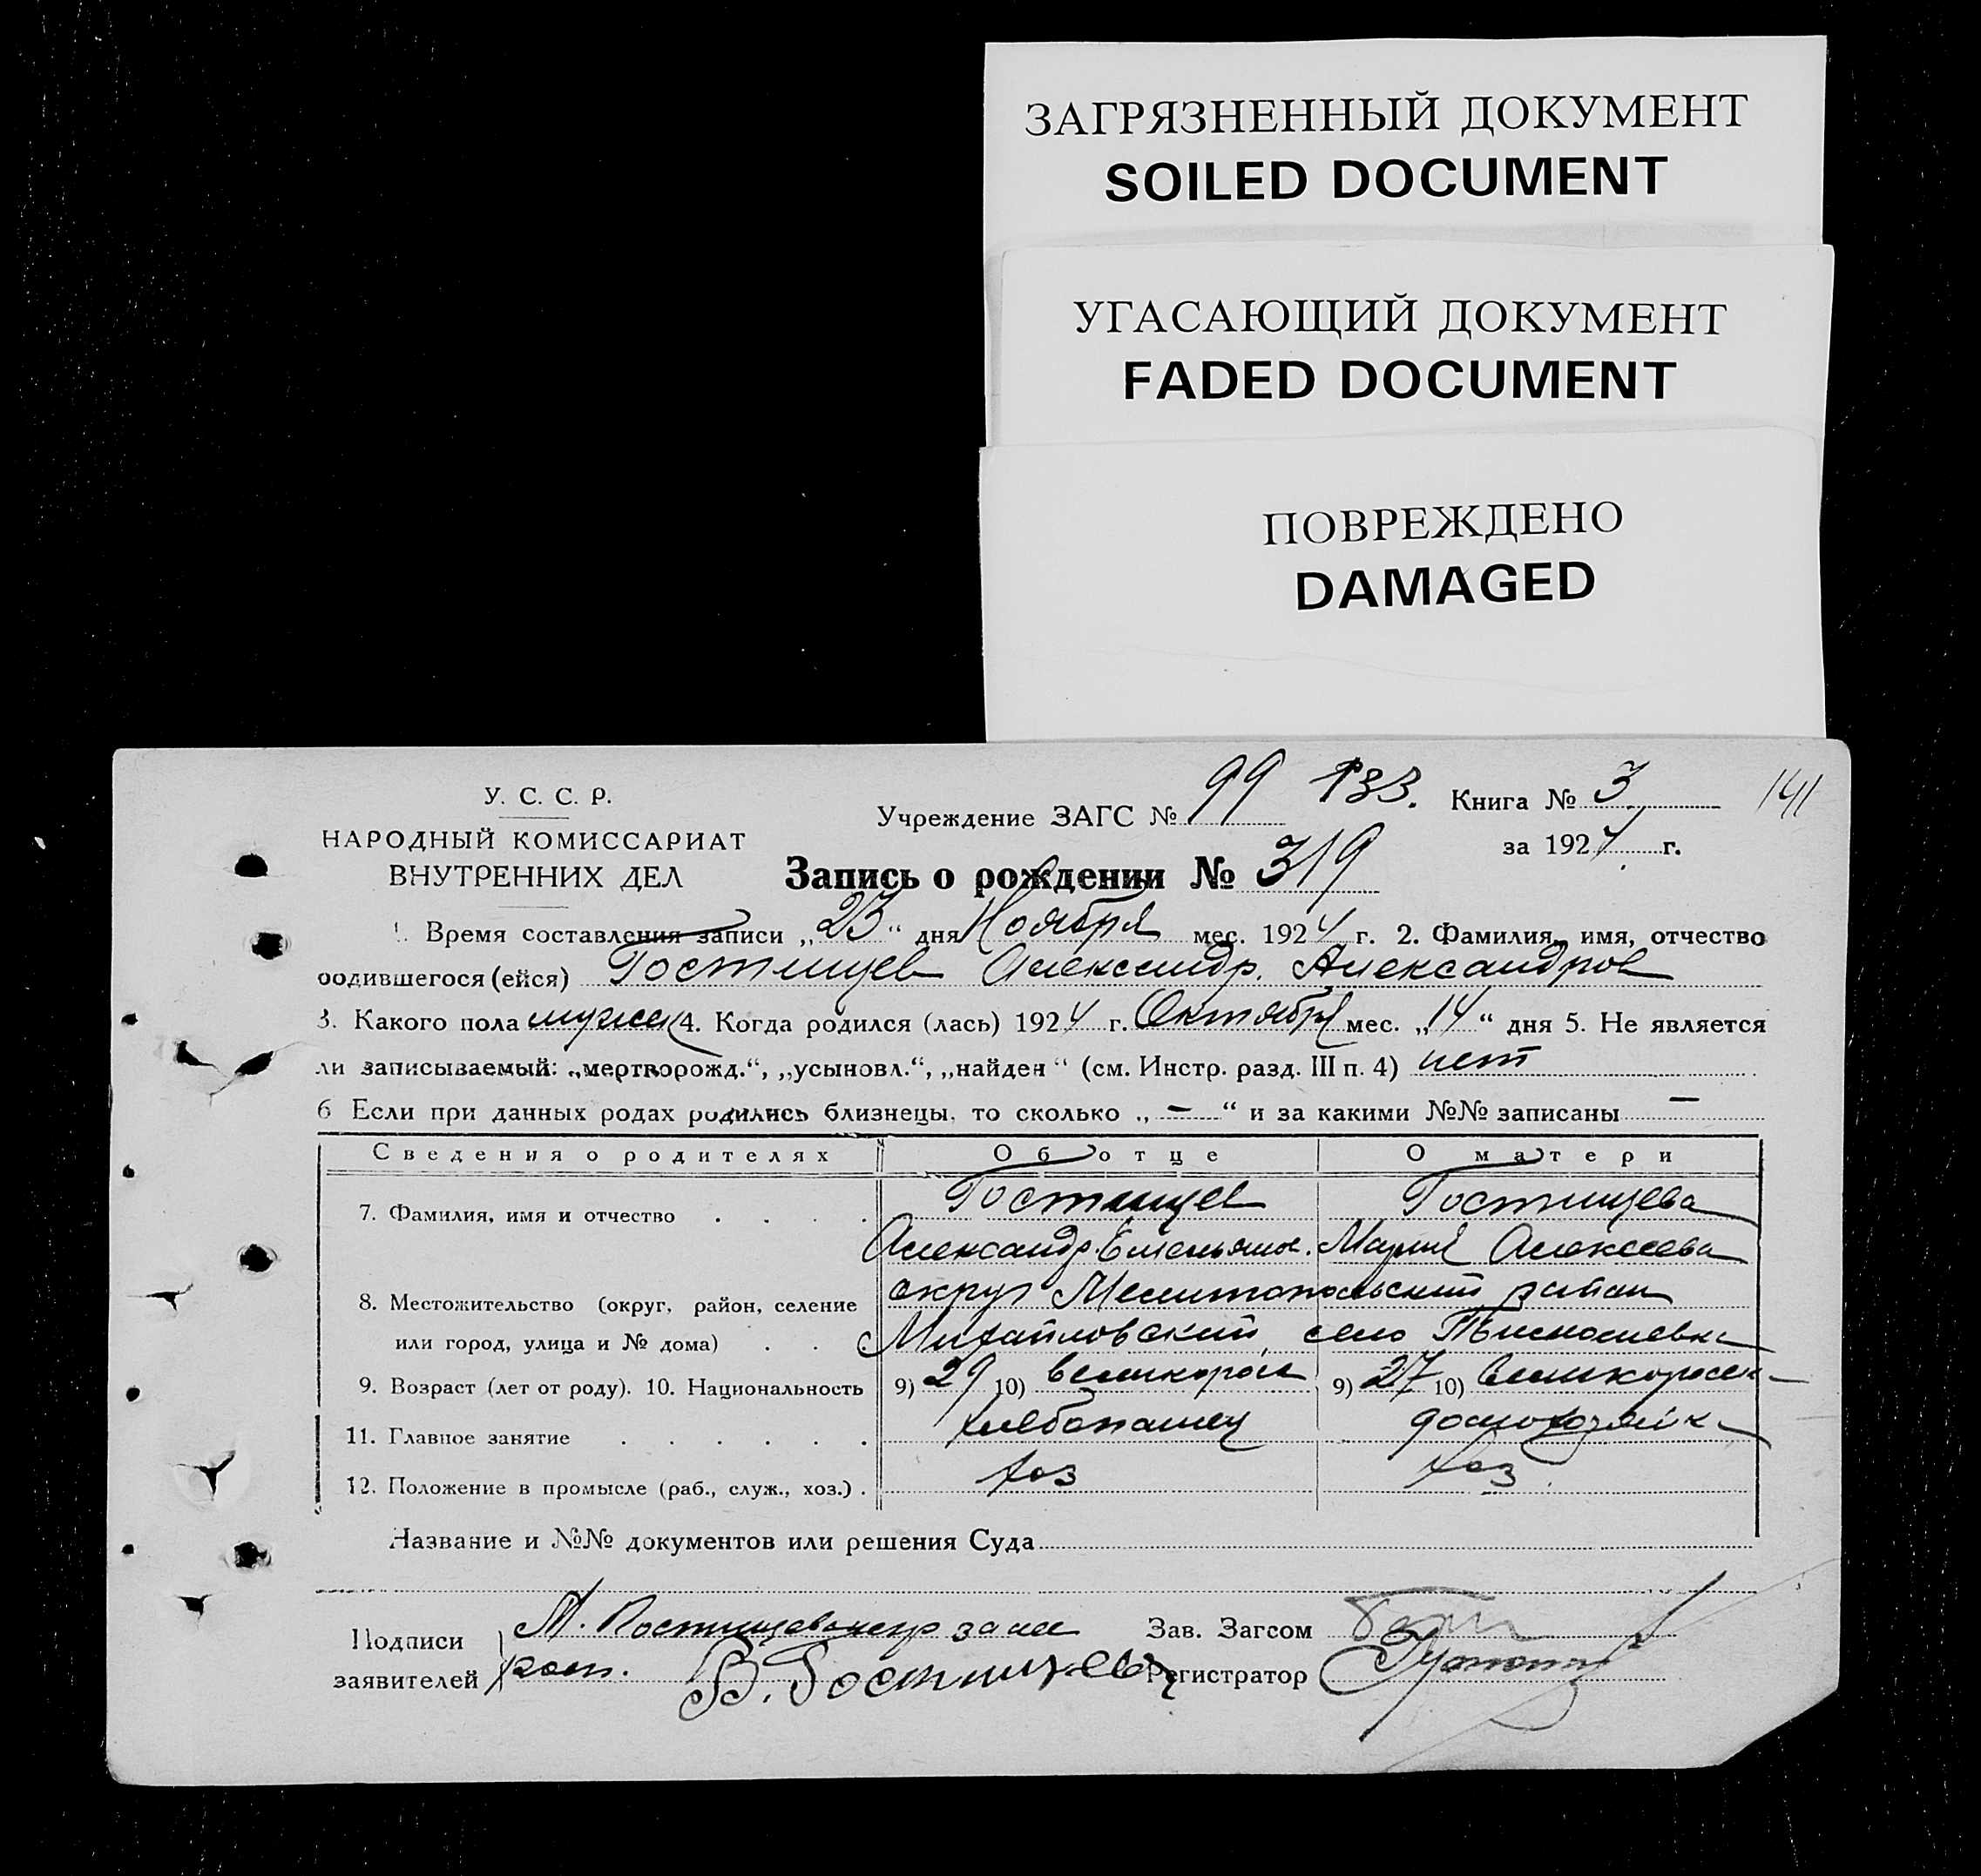 ЗАГРЯЗНЕННЫЙ ДОКУМЕНТ
SOILED DOCUMENT
УГАСАЮЩИЙ ДОКУМЕНТ
FADED DOCUMENT
ПОВРЕЖДЕНО
DAMAGED
У. С. С. Р.
НАРОДНЫЙ КОМИССАРИАТ
ВНУТРЕННИХ ДЕЛ
Учреждение ЗАГС № 99 Книга № 3 141
за 1924 г.
Запись о рождении № 319
1. Время составления записи „23“ дня Ноября мес. 1924 г. 2. Фамилия, имя, отчество
родившегося (ейся) Гостищев Александр. Александров
3. Какого пола мужск 4. Когда родился (лась) 1924 г. Октября мес. „14“ дня 5. Не является
ли записываемый: „мертворожд.“, „усыновл.“, „найден“ (см. Инстр. разд. III п. 4) нет
6 Если при данных родах родились близнецы, то сколько „ — “ и за какими №№ записаны —
Сведения о родителях Об отце О матери
7. Фамилия, имя и отчество . . . . Гостищев Гостищева
Александр. Емельянов. Мария Алексеева
8. Местожительство (округ, район, селение округ Мелитопольский район
или город, улица и № дома) . . . Михайловский, село
9. Возраст (лет от роду). 10. Национальность 9) 29 10) великорос 9) 27 10)
11. Главное занятие . . . . . . хлебопашец домохозяйка
12. Положение в промысле (раб., служ., хоз.) . хоз хоз.
Название и №№ документов или решения Суда
Подписи Зав. Загсом
заявителей В. Гостищев Регистратор